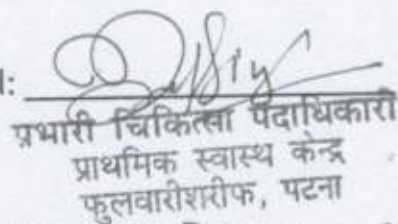 प्रभारी चिकित्सा पदाधिकारी
प्राथमिक स्वास्थ केन्द्र
फुलवारीशरीफ, पटना